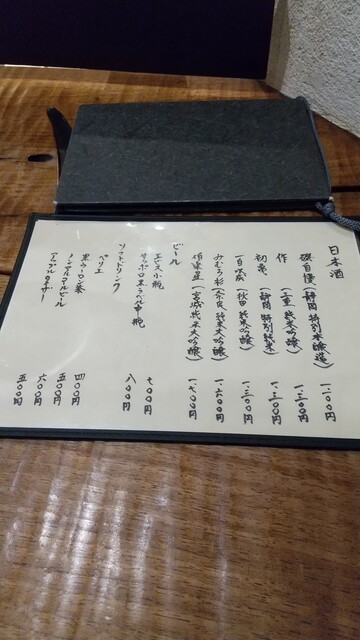 日本酒
磯自慢（静岡 特別本醸造） 一、一〇〇円
作（三重 純米吟醸） 一、二〇〇円
初亀（静岡 特別純米） 一、二〇〇円
一白水成（秋田 純米吟醸） 一、三〇〇円
みむろ杉（奈良 純米大吟醸） 一、六〇〇円
伯楽星（宮城 純米大吟醸） 一、八〇〇円
ビール
エビス小瓶 七〇〇円
サッポロ黒ラベル中瓶 八〇〇円
ソフトドリンク
ペリエ
黒ウーロン茶 四〇〇円
ノンアルコールビール 五〇〇円
アップルタイザー 六〇〇円
五〇〇円